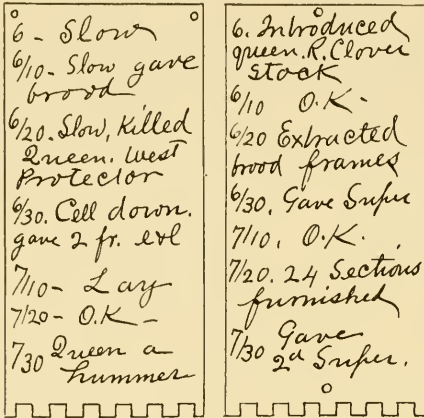 6 - Slow
6/10 - Slow gave
brood
6/20. Slow, Killed
Queen. West
Protector
6/30. Cell down.
gave 2 fr. exl
7/10 - Lay
7/20 - O.K -
7/30 Queen a
hummer
6. Introduced
queen. R. Clover
Stock
6/10 O.K -
6/20 Extracted
brood frames
6/30. Gave Super
7/10. O.K.
7/20. 24 Sections
furnished
7/30 Gave
2d Super.